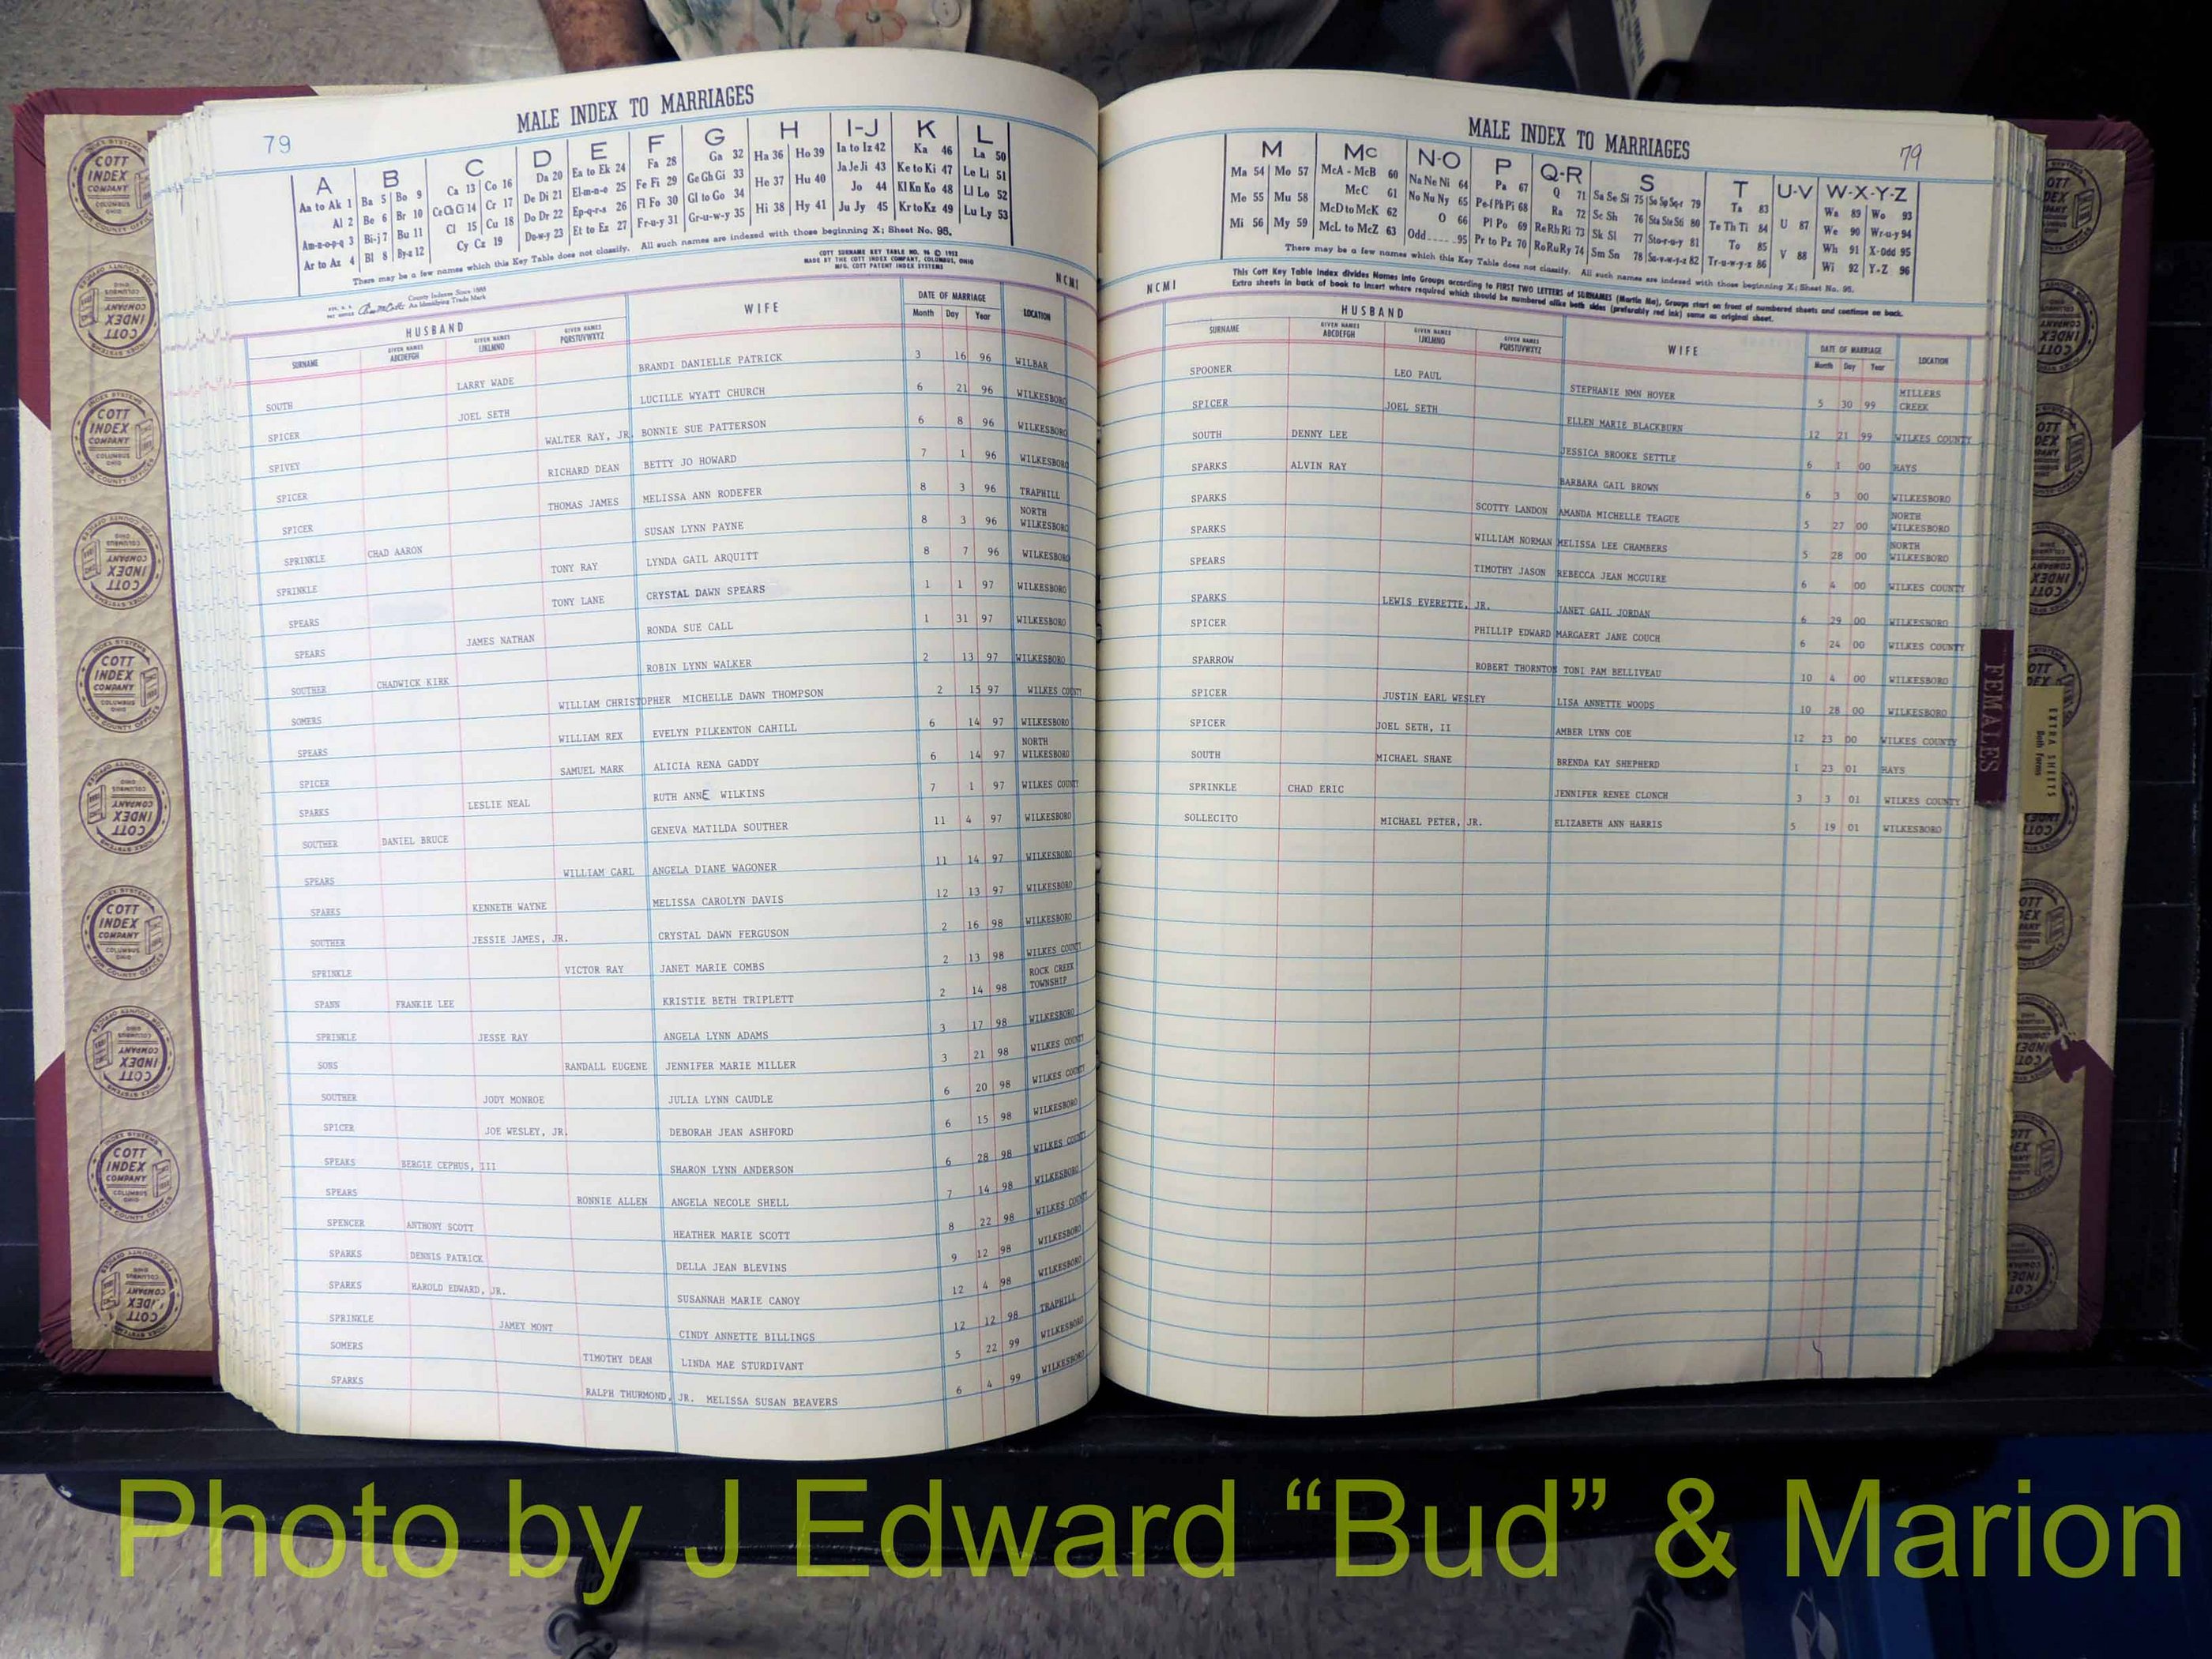 79
MALE INDEX TO MARRIAGES
A B C D E F G H I-J K L
Aa to Ak 1 Ba 5 Bo 9 Ca 13 Co 16 Da 20 Ea to Ek 24 Fa 28 Ga 32 Ha 36 Ho 39 Ia to Iz 42 Ka 46 La 50
Al 2 Be 6 Br 10 Ce Ch Ci 14 Cr 17 De Di 21 El-m-n-o 25 Fe Fi 29 Ge Gh Gi 33 He 37 Hu 40 Ja Je Ji 43 Ke to Ki 47 Le Li 51
Am-n-o-p-q 3 Bi-j 7 Bu 11 Cl 15 Cu 18 Do Dr 22 Ep-q-r-s 26 Fl Fo 30 Gl to Go 34 Hi 38 Hy 41 Jo 44 Kl Kn Ko 48 Ll Lo 52
Ar to Az 4 Bl 8 By-z 12 Cy Cz 19 Du-w-y 23 Et to Ez 27 Fr-u-y 31 Gr-u-w-y 35 Ju Jy 45 Kr to Kz 49 Lu Ly 53
There may be a few names which this Key Table does not classify. All such names are indexed with those beginning X; Sheet No. 95.
COTT SURNAME KEY TABLE NO. 96 © 1952
MADE BY THE COTT INDEX COMPANY, COLUMBUS, OHIO
MFG. COTT PATENT INDEX SYSTEMS
County Indexes Since 1888
An Identifying Trade Mark
NCMI
HUSBAND WIFE DATE OF MARRIAGE LOCATION
SURNAME GIVEN NAMES ABCDEFGH GIVEN NAMES IJKLMNO GIVEN NAMES PQRSTUVWXYZ Month Day Year
SOUTH LARRY WADE BRANDI DANIELLE PATRICK 3 16 96 WILBAR
SPICER JOEL SETH LUCILLE WYATT CHURCH 6 21 96 WILKESBORO
SPIVEY WALTER RAY, JR. BONNIE SUE PATTERSON 6 8 96 WILKESBORO
SPICER RICHARD DEAN BETTY JO HOWARD 7 1 96 WILKESBORO
SPICER THOMAS JAMES MELISSA ANN RODEFER 8 3 96 TRAPHILL
SPRINKLE CHAD AARON SUSAN LYNN PAYNE 8 3 96 NORTH WILKESBORO
SPRINKLE TONY RAY LYNDA GAIL ARQUITT 8 7 96 WILKESBORO
SPEARS TONY LANE CRYSTAL DAWN SPEARS 1 1 97 WILKESBORO
SPEARS JAMES NATHAN RONDA SUE CALL 1 31 97 WILKESBORO
SOUTHER CHADWICK KIRK ROBIN LYNN WALKER 2 13 97 WILKESBORO
SOMERS WILLIAM CHRISTOPHER MICHELLE DAWN THOMPSON 2 15 97 WILKES COUNTY
SPEARS WILLIAM REX EVELYN PILKENTON CAHILL 6 14 97 WILKESBORO
SPICER SAMUEL MARK ALICIA RENA GADDY 6 14 97 NORTH WILKESBORO
SPARKS LESLIE NEAL RUTH ANNE WILKINS 7 1 97 WILKES COUNTY
SOUTHER DANIEL BRUCE GENEVA MATILDA SOUTHER 11 4 97 WILKESBORO
SPEARS WILLIAM CARL ANGELA DIANE WAGONER 11 14 97 WILKESBORO
SPARKS KENNETH WAYNE MELISSA CAROLYN DAVIS 12 13 97 WILKESBORO
SOUTHER JESSIE JAMES, JR. CRYSTAL DAWN FERGUSON 2 16 98 WILKESBORO
SPRINKLE VICTOR RAY JANET MARIE COMBS 2 13 98 WILKES COUNTY
SPANN FRANKIE LEE KRISTIE BETH TRIPLETT 2 14 98 ROCK CREEK TOWNSHIP
SPRINKLE JESSE RAY ANGELA LYNN ADAMS 3 17 98 WILKESBORO
SONS RANDALL EUGENE JENNIFER MARIE MILLER 3 21 98 WILKES COUNTY
SOUTHER JODY MONROE JULIA LYNN CAUDLE 6 20 98 WILKES COUNTY
SPICER JOE WESLEY, JR. DEBORAH JEAN ASHFORD 6 15 98 WILKESBORO
SPEAKS BERGIE CEPHUS, III SHARON LYNN ANDERSON 6 28 98 WILKES COUNTY
SPEARS RONNIE ALLEN ANGELA NECOLE SHELL 7 14 98 WILKESBORO
SPENCER ANTHONY SCOTT HEATHER MARIE SCOTT 8 22 98 WILKES COUNTY
SPARKS DENNIS PATRICK DELLA JEAN BLEVINS 9 12 98 WILKESBORO
SPARKS HAROLD EDWARD, JR. SUSANNAH MARIE CANOY 12 4 98 WILKESBORO
SPRINKLE JAMEY MONT CINDY ANNETTE BILLINGS 12 12 98 TRAPHILL
SOMERS TIMOTHY DEAN LINDA MAE STURDIVANT 5 22 99 WILKESBORO
SPARKS RALPH THURMOND, JR. MELISSA SUSAN BEAVERS 6 4 99 WILKESBORO
MALE INDEX TO MARRIAGES
79
M Mc N-O P Q-R S T U-V W-X-Y-Z
Ma 54 Mo 57 McA - McB 60 Na Ne Ni 64 Pa 67 Q 71 Sa Se Si 75 So Sp Sq-r 79 Ta 83 U 87 Wa 89 Wo 93
Me 55 Mu 58 McC 61 No Nu Ny 65 Pe-f Ph Pi 68 Ra 72 Sc Sh 76 Sta Ste Sti 80 Te Th Ti 84 V 88 We 90 Wr-u-y 94
Mi 56 My 59 McD to McK 62 O 66 Pl Po 69 Re Rh Ri 73 Sk Sl 77 Sto-r-u-y 81 To 85 Wh 91 X-Odd 95
McL to McZ 63 Odd 95 Pr to Pz 70 Ro Ru Ry 74 Sm Sn 78 Su-v-w-y-z 82 Tr-u-w-y-z 86 Wi 92 Y-Z 96
There may be a few names which this Key Table does not classify. All such names are indexed with those beginning X; Sheet No. 95.
This Cott Key Table Index divides Names into Groups according to FIRST TWO LETTERS of SURNAMES (Martin Ma), Groups start on front of numbered sheets and continue on back.
Extra sheets in back of book to insert where required which should be numbered alike both sides (preferably red ink) same as original sheet.
NCMI
HUSBAND WIFE DATE OF MARRIAGE LOCATION
SURNAME GIVEN NAMES ABCDEFGH GIVEN NAMES IJKLMNO GIVEN NAMES PQRSTUVWXYZ Month Day Year
SPOONER LEO PAUL STEPHANIE NMN HOVER 5 30 99 MILLERS CREEK
SPICER JOEL SETH ELLEN MARIE BLACKBURN 12 21 99 WILKES COUNTY
SOUTH DENNY LEE JESSICA BROOKE SETTLE 6 1 00 HAYS
SPARKS ALVIN RAY BARBARA GAIL BROWN 6 3 00 WILKESBORO
SPARKS SCOTTY LANDON AMANDA MICHELLE TEAGUE 5 27 00 NORTH WILKESBORO
SPARKS WILLIAM NORMAN MELISSA LEE CHAMBERS 5 28 00 NORTH WILKESBORO
SPEARS TIMOTHY JASON REBECCA JEAN MCGUIRE 6 4 00 WILKES COUNTY
SPARKS LEWIS EVERETTE, JR. JANET GAIL JORDAN 6 29 00 WILKESBORO
SPICER PHILLIP EDWARD MARGAERT JANE COUCH 6 24 00 WILKES COUNTY
SPARROW ROBERT THORNTON TONI PAM BELLIVEAU 10 4 00 WILKESBORO
SPICER JUSTIN EARL WESLEY LISA ANNETTE WOODS 10 28 00 WILKESBORO
SPICER JOEL SETH, II AMBER LYNN COE 12 23 00 WILKES COUNTY
SOUTH MICHAEL SHANE BRENDA KAY SHEPHERD 1 23 01 HAYS
SPRINKLE CHAD ERIC JENNIFER RENEE CLONCH 3 3 01 WILKES COUNTY
SOLLECITO MICHAEL PETER, JR. ELIZABETH ANN HARRIS 5 19 01 WILKESBORO
FEMALES
EXTRA SHEETS
Both Forms
COTT INDEX COMPANY COLUMBUS OHIO
INDEX SYSTEMS FOR COUNTY OFFICES
Photo by J Edward “Bud” & Marion